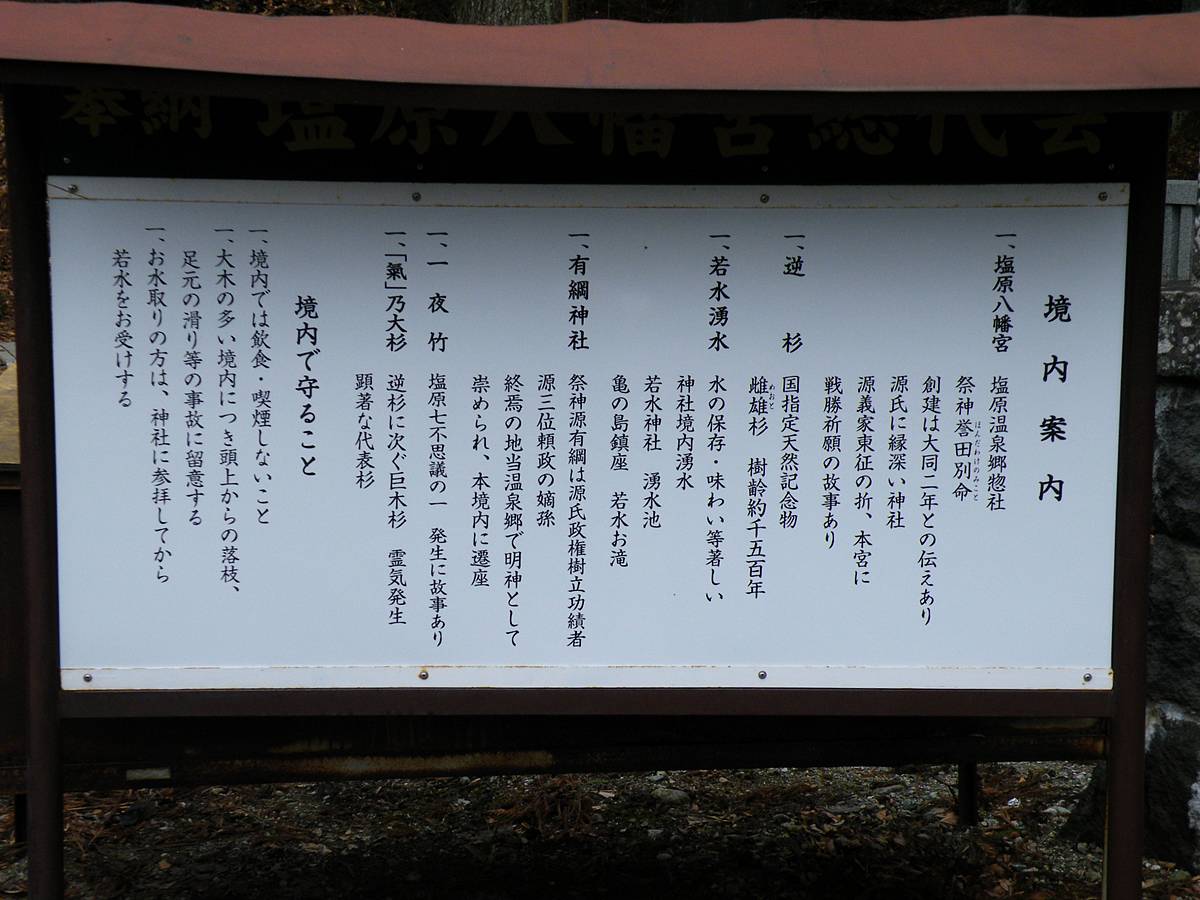 奉納 塩原八幡宮総代会
境内案内
一、塩原八幡宮 塩原温泉郷惣社
祭神誉田別命
ほんだわけのみこと
創建は大同二年との伝えあり
源氏に縁深い神社
源義家東征の折、本宮に
戦勝祈願の故事あり
一、逆杉 国指定天然記念物
雌雄杉 樹齢約千五百年
めおと
一、若水湧水 水の保存・味わい等著しい
神社境内湧水
若水神社 湧水池
亀の島鎮座 若水お滝
一、有綱神社 祭神源有綱は源氏政権樹立功績者
源三位頼政の嫡孫
終焉の地当温泉郷で明神として
崇められ、本境内に遷座
一、一夜竹 塩原七不思議の一 発生に故事あり
一、「氣」乃大杉 逆杉に次ぐ巨木杉 霊気発生
顕著な代表杉
境内で守ること
一、境内では飲食・喫煙しないこと
一、大木の多い境内につき頭上からの落枝、
足元の滑り等の事故に留意する
一、お水取りの方は、神社に参拝してから
若水をお受けする